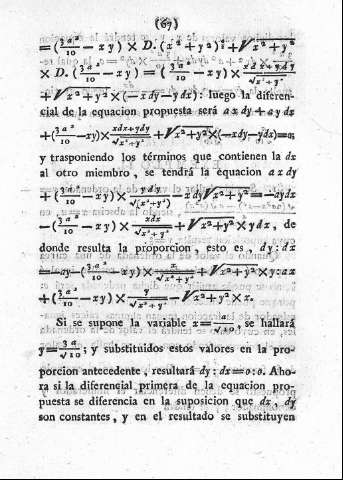 (67)
= (3a²/10 − xy) × D. (x² + y²)½ + √x² + y²
× D. (3a²/10 − xy) = (3a²/10 − xy) × xdx+ydy/√x²+y²
+ √x² + y² × (− xdy − ydx) : luego la diferen-
cial de la equacion propuesta será axdy + aydx
+ (3a²/10 − xy) × xdx+ydy/√x²+y² + √x²+y² × (−xdy−ydx) = 0;
y trasponiendo los términos que contienen la dx
al otro miembro, se tendrá la equacion axdy
+ (3a²/10 − xy) × ydy/√(x²+y²) − xdy√x²+y² = −aydx
− (3a²/10 − xy) × xdx/√x²+y² + √x²+y² × ydx, de
donde resulta la proporcion, esto es, dy : dx
= −ay − (3a²/10 − xy) × x/√x²+y² + √x²+y² × y : ax
+ (3a²/10 − xy) × y/√x²+y² − √x²+y² × x.
Si se supone la variable x = a/√10, se hallará
y = 3a/√10; y substituidos estos valores en la pro-
porcion antecedente, resultará dy : dx = 0 : 0. Aho-
ra si la diferencial primera de la equacion pro-
puesta se diferencia en la suposicion que dx, dy
son constantes, y en el resultado se substituyen